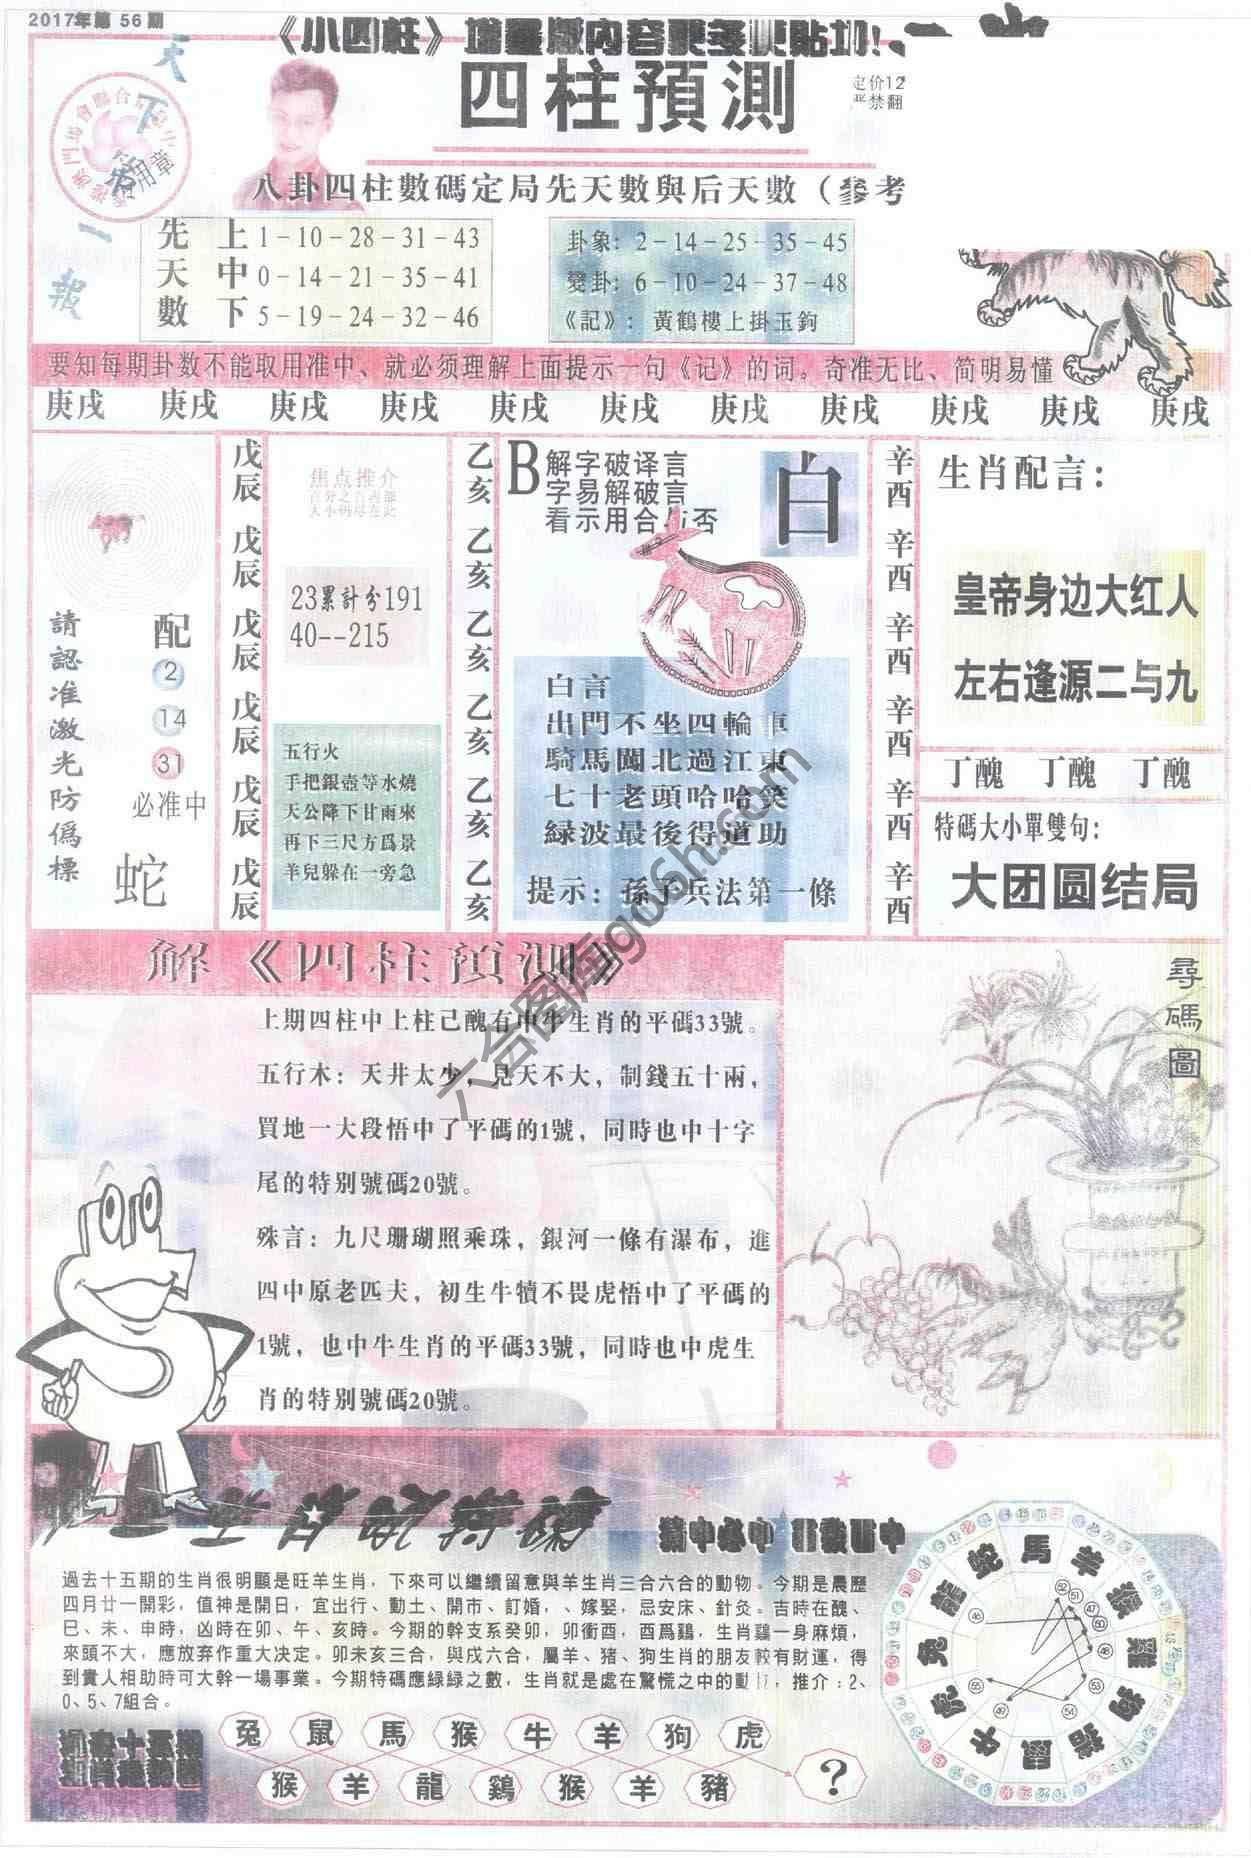 2017年第 56 期
《小四柱》
四柱預測
定价12
严禁翻
天
下
第
一
報
八卦四柱數碼定局先天數與后天數（參考
先天數
上 1-10-28-31-43
中 0-14-21-35-41
下 5-19-24-32-46
卦象：2-14-25-35-45
變卦：6-10-24-37-48
《記》：黃鶴樓上掛玉鉤
要知每期卦数不能取用准中、就必须理解上面提示一句《记》的词。奇准无比、简明易懂
庚戌 庚戌 庚戌 庚戌 庚戌 庚戌 庚戌 庚戌 庚戌 庚戌 庚戌
請認准激光防僞標
配
2
14
31
必准中
蛇
戊辰 戊辰 戊辰 戊辰 戊辰 戊辰
焦点推介
23累計分191
40--215
五行火
手把銀壺等水燒
天公降下甘雨來
再下三尺方爲景
羊兒躲在一旁急
乙亥 乙亥 乙亥 乙亥 乙亥 乙亥
B 解字破译言
字易解破言
看示用合与否
白
白言
出門不坐四輪車
騎馬闖北過江東
七十老頭哈哈笑
緑波最後得道助
提示：孫子兵法第一條
辛酉 辛酉 辛酉 辛酉 辛酉 辛酉
生肖配言：
皇帝身边大红人
左右逢源二与九
丁醜 丁醜 丁醜
特碼大小單雙句：
大团圆结局
解《四柱預測》
上期四柱中上柱己醜有中牛生肖的平碼33號。
五行木：天井太少，見天不大，制錢五十兩，
買地一大段悟中了平碼的1號，同時也中十字
尾的特别號碼20號。
殊言：九尺珊瑚照乘珠，銀河一條有瀑布，進
四中原老匹夫，初生牛犢不畏虎悟中了平碼的
1號，也中牛生肖的平碼33號，同時也中虎生
肖的特别號碼20號。
尋碼圖
過去十五期的生肖很明顯是旺羊生肖，下來可以繼續留意與羊生肖三合六合的動物。今期是農歷
四月廿一開彩，值神是開日，宜出行、動土、開市、訂婚，、嫁娶，忌安床、針灸。吉時在醜、
巳、未、申時，凶時在卯、午、亥時。今期的幹支系癸卯，卯衝酉，酉爲鷄，生肖鷄一身麻煩，
來頭不大，應放弃作重大决定。卯未亥三合，與戌六合，屬羊、猪、狗生肖的朋友較有財運，得
到貴人相助時可大幹一場事業。今期特碼應緑緑之數，生肖就是處在驚慌之中的動物，推介：2、
0、5、7組合。
兔 鼠 馬 猴 牛 羊 狗 虎
猴 羊 龍 鷄 猴 羊 豬 ?
馬 羊 猴 鷄 狗 豬 鼠 牛 虎 兔 龍 蛇
六合图库gw6h.com